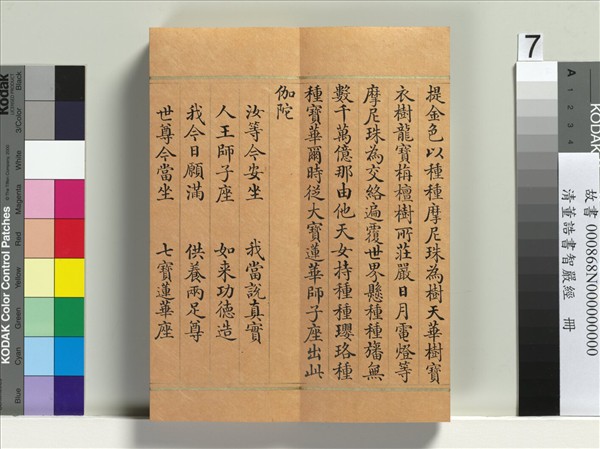 提金色以種種摩尼珠為樹天華樹寶
衣樹龍寶栴檀樹所莊嚴日月電燈等
摩尼珠為交絡遍覆世界懸種種旛無
數千萬億那由他天女持種種瓔珞種
種寶華爾時從大寶蓮華師子座出此
伽陀
汝等今安坐 我當說真實
人王師子座 如來功德造
我今日願滿 供養兩足尊
世尊今當坐 七寶蓮華座
7
A
1
2
3
4
故書 000868N000000000
清董誥書智嚴經 冊
Kodak
KODAK Color Control Patches
Blue
Cyan
Green
Yellow
Red
Magenta
White
3/Color
Black